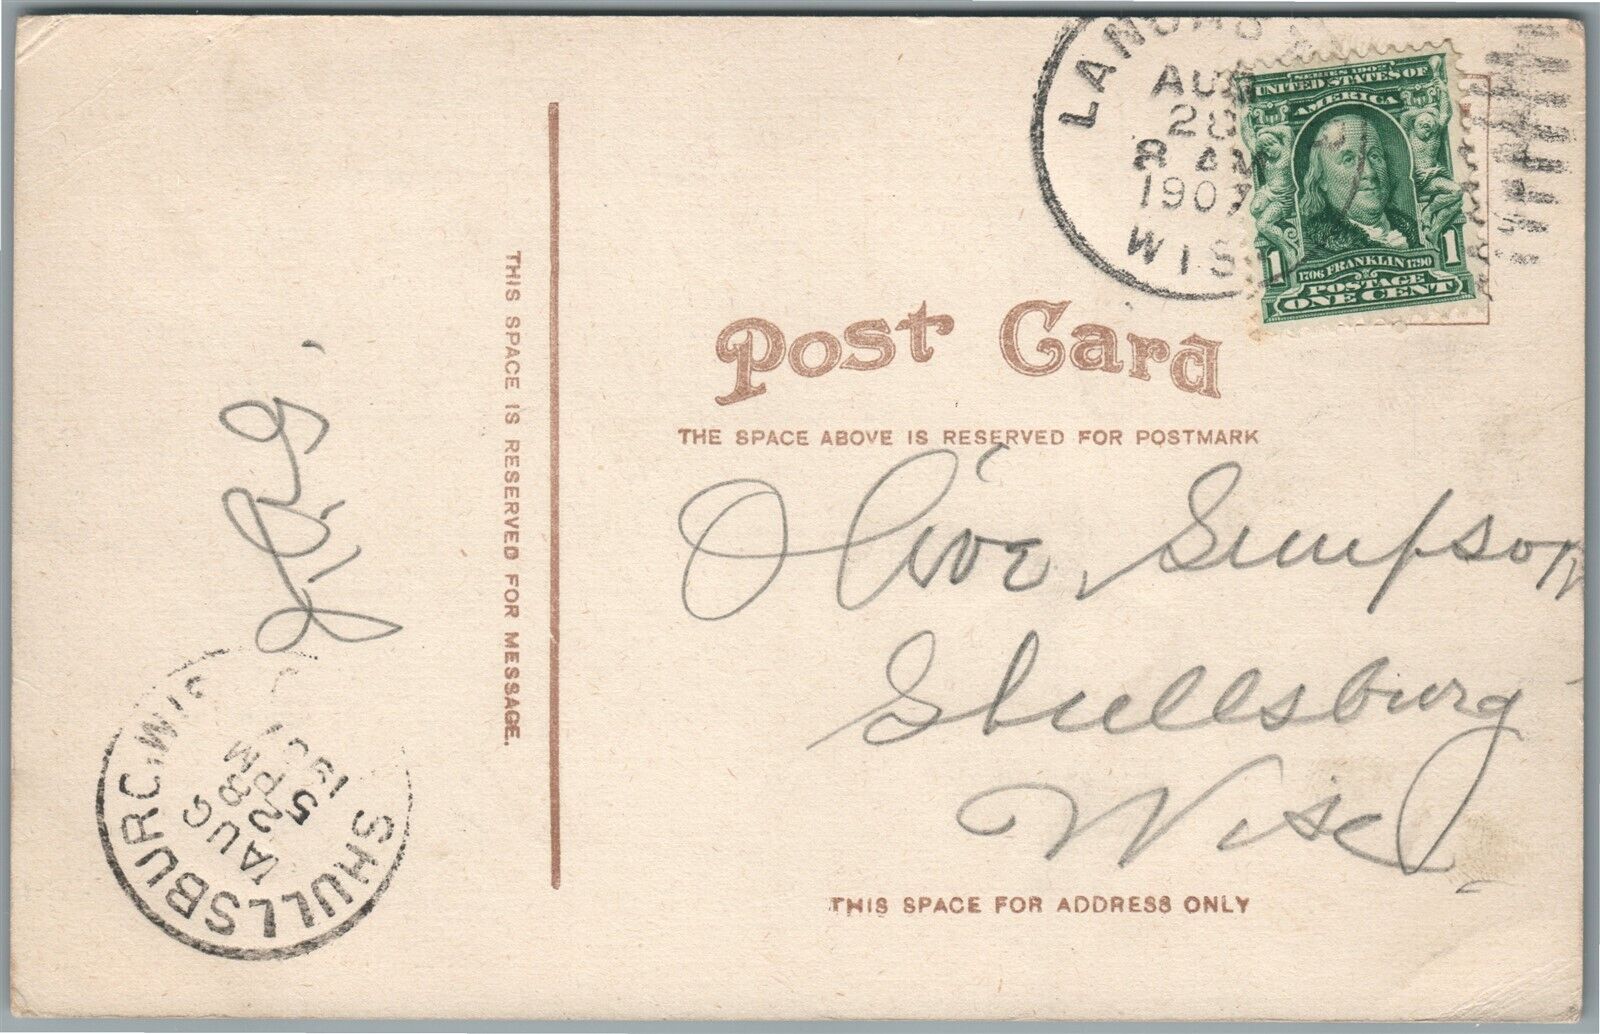 AUG
28
8 AM
1907
WIS
SERIES 1902
UNITED STATES OF
AMERICA
1706 FRANKLIN 1790
1 1
POSTAGE
ONE CENT
Post Card
THE SPACE ABOVE IS RESERVED FOR POSTMARK
THIS SPACE IS RESERVED FOR MESSAGE.
Olive Simpson
Shullsburg
Wisc.
THIS SPACE FOR ADDRESS ONLY
SHULLSBURG, WIS
AUG
28
5 PM